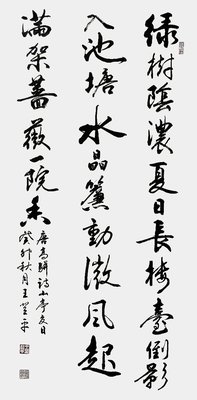 綠樹陰濃夏日長楼臺倒影
入池塘水晶簾動微風起
滿架薔薇一院香
唐高駢詩山亭夏日
癸卯秋月王